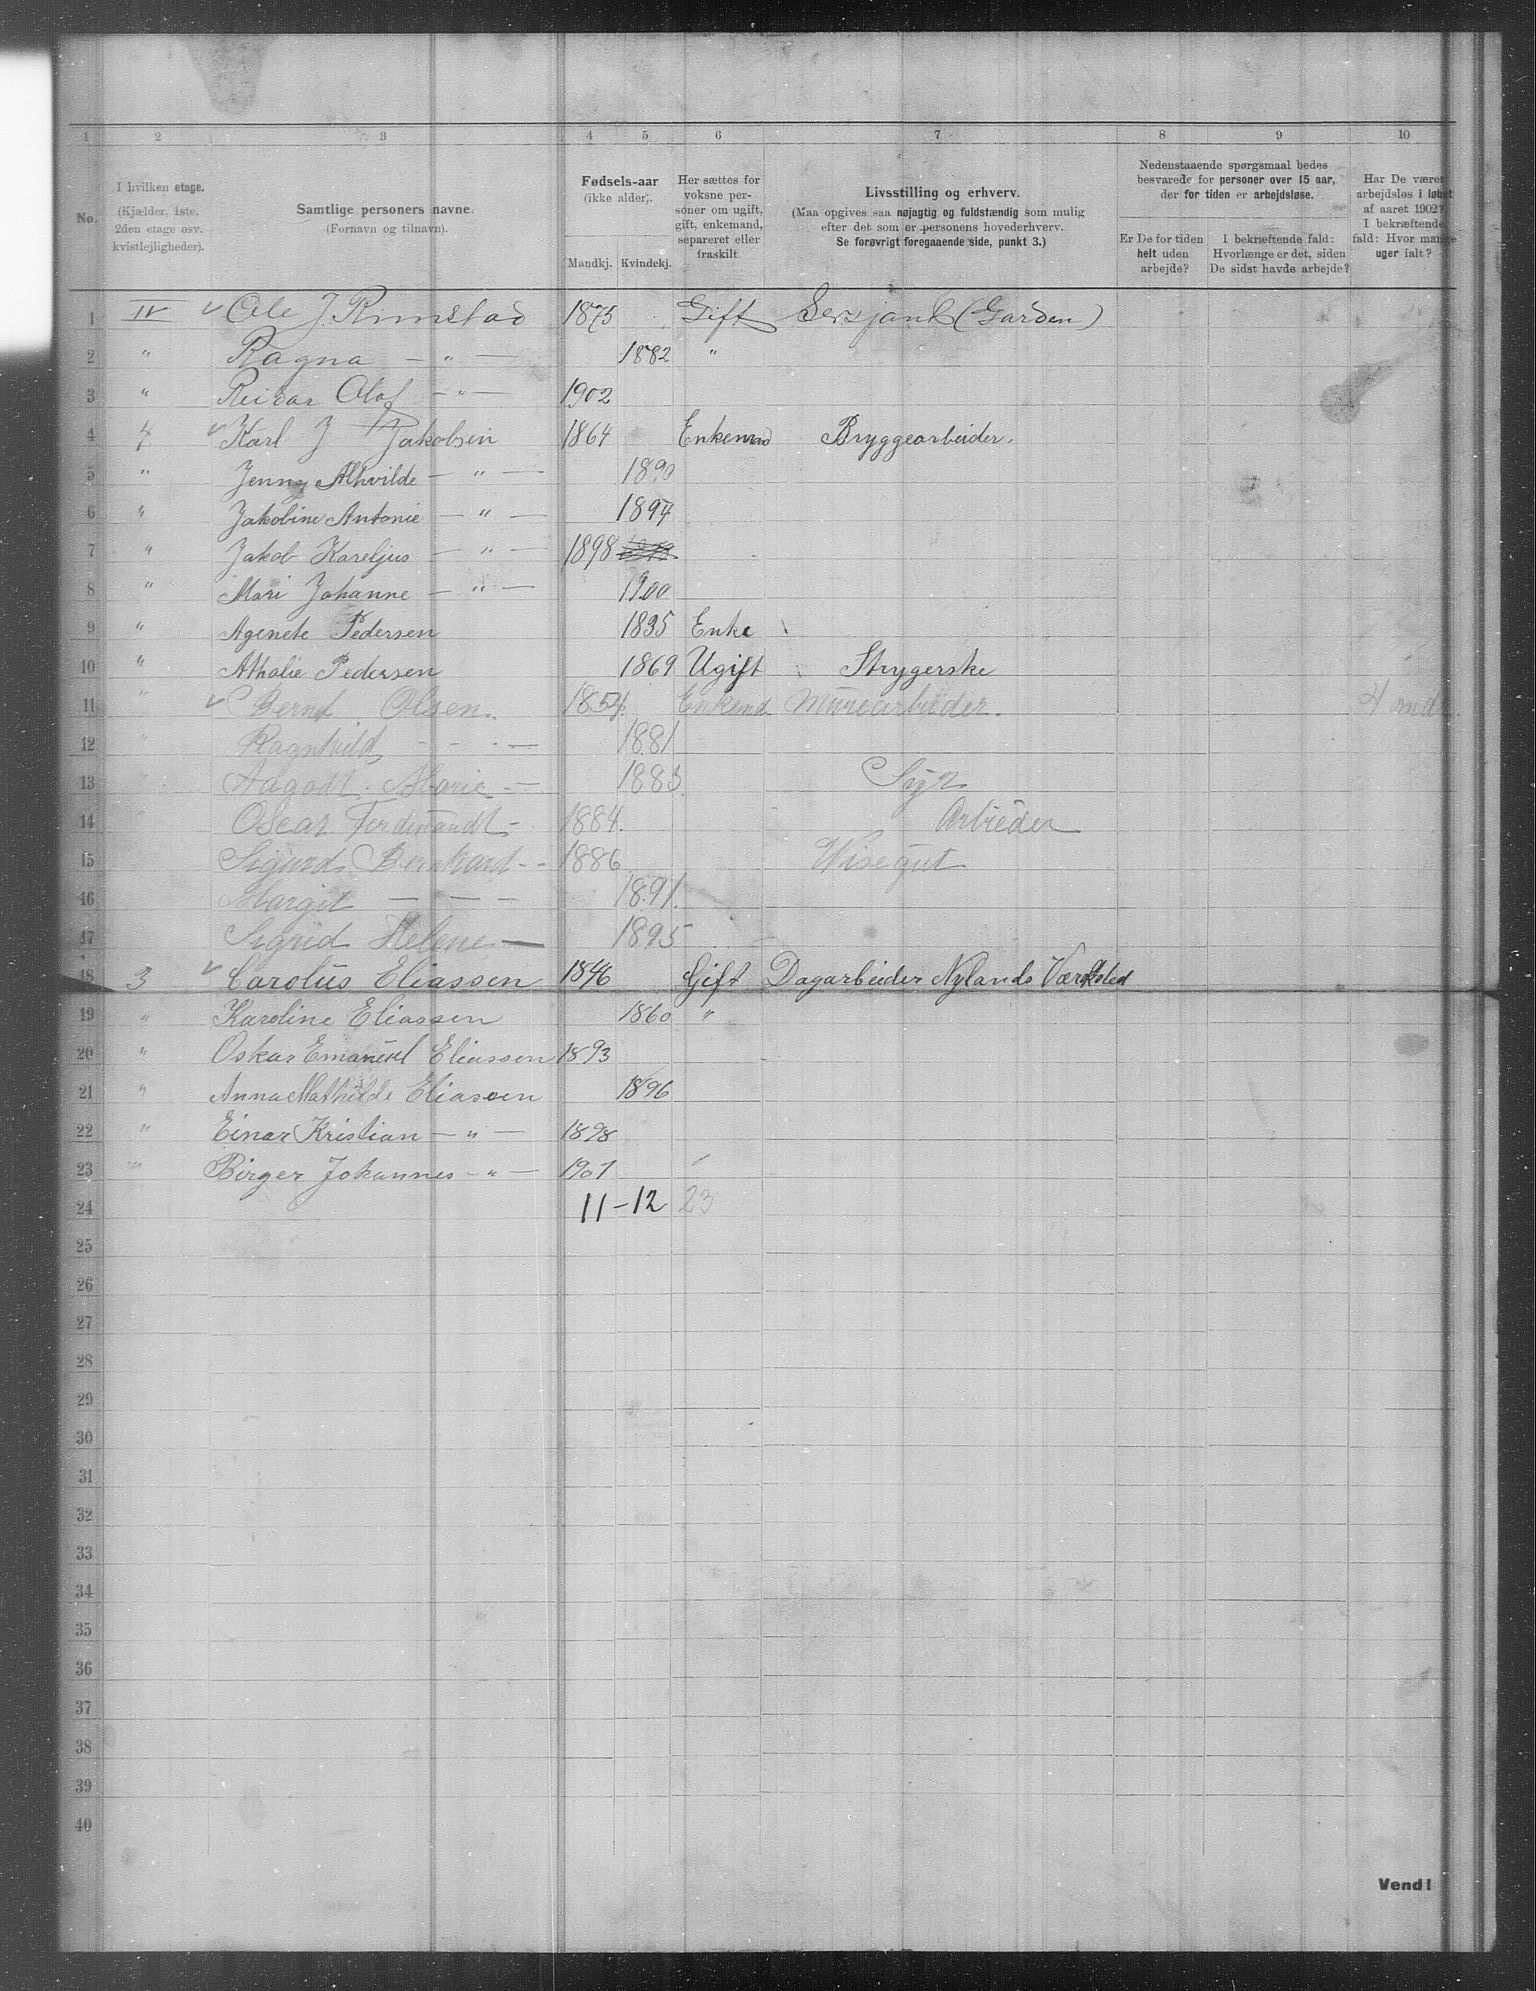 1 2 3 4 5 6 7 8 9 10
No.
I hvilken etage.
(Kjælder, 1ste,
2den etage osv.
kvistlejligheder).
Samtlige personers navne.
(Fornavn og tilnavn).
Fødsels-aar
(ikke alder).
Mandkj. Kvindekj.
Her sættes for
voksne per-
soner om ugift,
gift, enkemand,
separeret eller
fraskilt.
Livsstilling og erhverv.
(Maa opgives saa nøjagtig og fuldstændig som mulig
efter det som er personens hovederhverv.
Se forøvrigt foregaaende side, punkt 3.)
Nedenstaaende spørgsmaal bedes
besvarede for personer over 15 aar,
der for tiden er arbejdsløse.
Er De for tiden
helt uden
arbejde?
I bekræftende fald:
Hvorlænge er det, siden
De sidst havde arbejde?
Har De været
arbejdsløs i løbet
af aaret 1902?
I bekræftende
fald: Hvor mange
uger ialt?
1 IV ✓ Ole J. Rimstad 1875 Gift Sersjant (Garden)
2 " Ragna — " — 1882 "
3 " Reidar Olaf — " — 1902
4 4 ✓ Karl J Jakobsen 1864 Enkemnd Bryggearbeider.
5 " Jenny Althvilde — " — 1890
6 " Jakobine Antonie — " — 1894
7 " Jakob Kareljus — " — 1898
8 " Mari Johanne — " — 1900
9 " Agenete Pedersen 1835 Enke
10 " Athalie Pedersen 1869 Ugift Strygerske
11 " ✓ Bernt Olsen. 1854. Enkemd Murearbeider.
12 " Ragnhild — — — 1881
13 " Aagodt. Marie — 1883. Syr
14 " Oscar Ferdinandt — 1884. Arbieder
15 Sigurd Bernhard - - 1886 Visegut
16 Margit — — — 1891.
17 Sigrid Helene — 1895
18 3 ✓ Carolus Eliassen 1846 Gift Dagarbeider Nylands Værksted
19 " Karoline Eliassen 1860 "
20 " Oskar Emanuel Eliassen 1893
21 " Anna Mathilde Eliassen 1896
22 " Einar Kristian — " — 1898
23 " Birger Johannes — " — 1901
24 11 - 12 23
25
26
27
28
29
30
31
32
33
34
35
36
37
38
39
40
Vend!